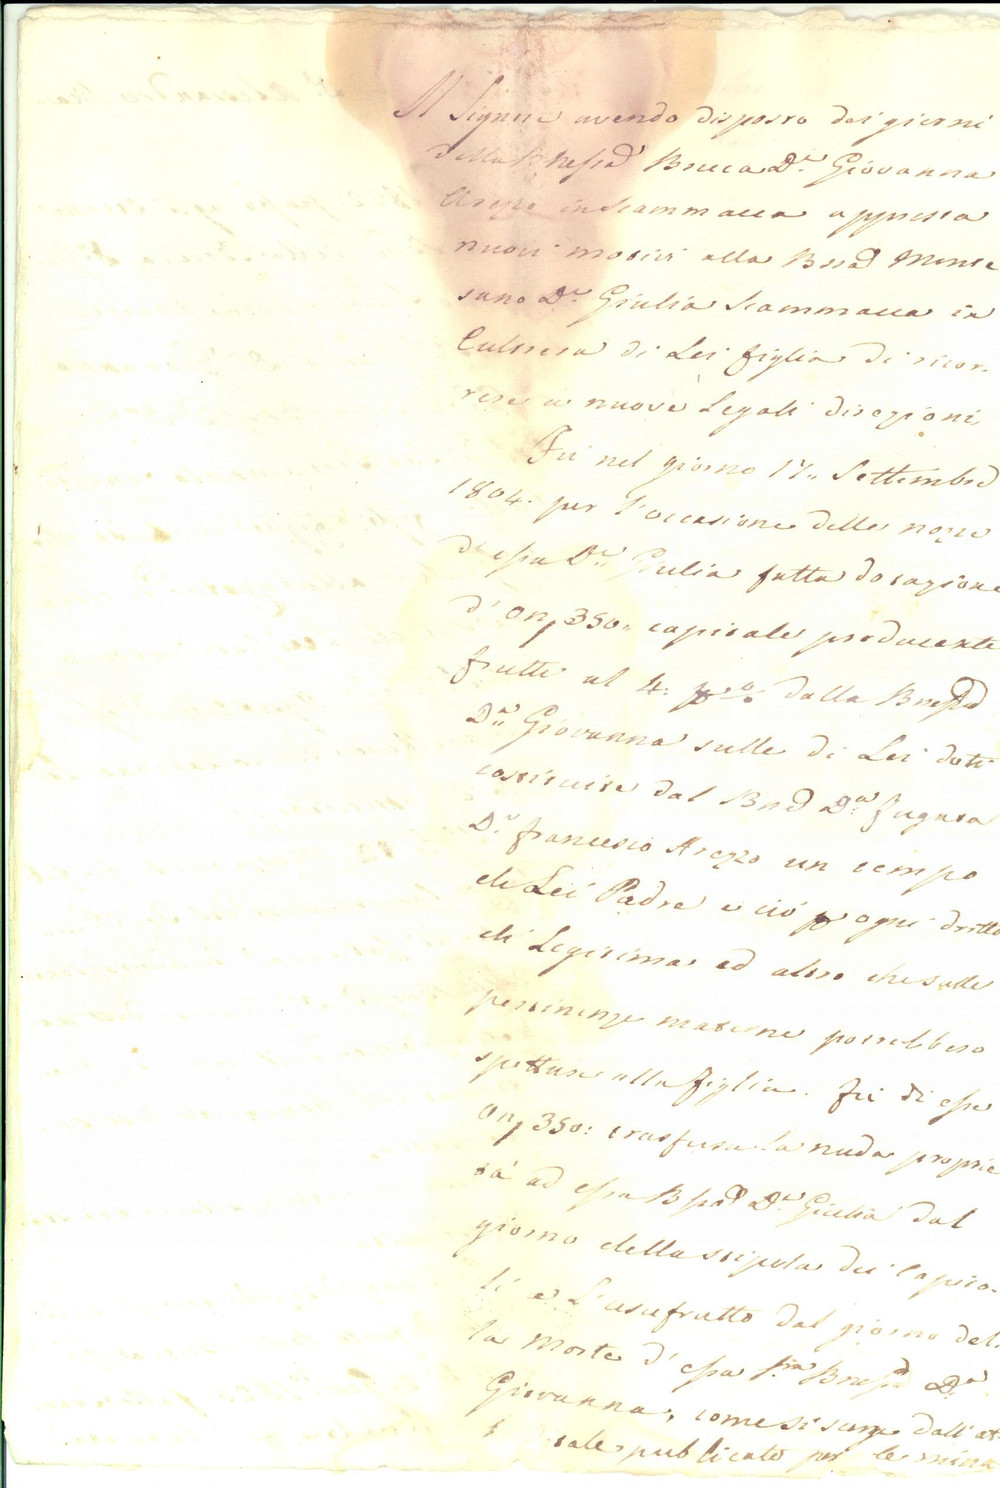 Il Signore avendo disposto dei giorni
della Bnessa Bnica Da. Giovanna
Arezzo in Scammacca appresta
nuovi motivi alla Bssa Monte
sano Da. Giulia Scammacca in
di Lei figlia di ricor-
rere a nuove Legali direzioni,
Fu nel giorno 17,, Settembre
1804. per l'occasione delle nozze
d'essa Da. Giulia fatta dotazione
d'onz 350,, capitale producente
frutti al 4: p % dalla Bnessa
Da. Giovanna sulle di Lei doti
costituite dal Bne
Dn. Francesco Arezzo un tempo
di Lei Padre e ciò p ogni dritto
di Legitima ed altro che sulle
pertinenze materne potrebbero
spettare alla figlia. Fu di esse
onz 350: trasfusa la nuda proprie
tà ad essa Bssa Da. Giulia dal
giorno della stipola dei Capito-
li e L'usufrutto dal giorno del-
la Morte d'essa Bnessa Da.
Giovanna, come si scorge dall'at-
pubblicato per le mina